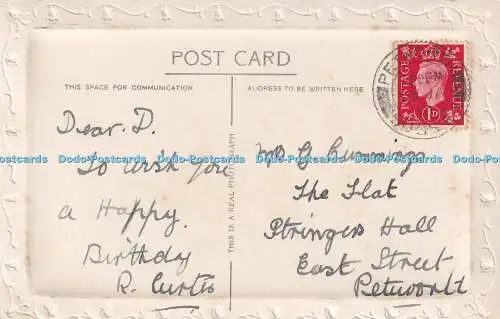 POST CARD
THIS SPACE FOR COMMUNICATION
ADDRESS TO BE WRITTEN HERE
Dear D.
To wish you
a Happy
Birthday
R. Curtis
THIS IS A REAL PHOTOGRAPH
G. Cummings
The Flat
Stringers Hall
East Street
Petworth
POSTAGE REVENUE
1D
Dodo-Postcards Dodo-Postcards Dodo-Postcards Dodo-Postcards